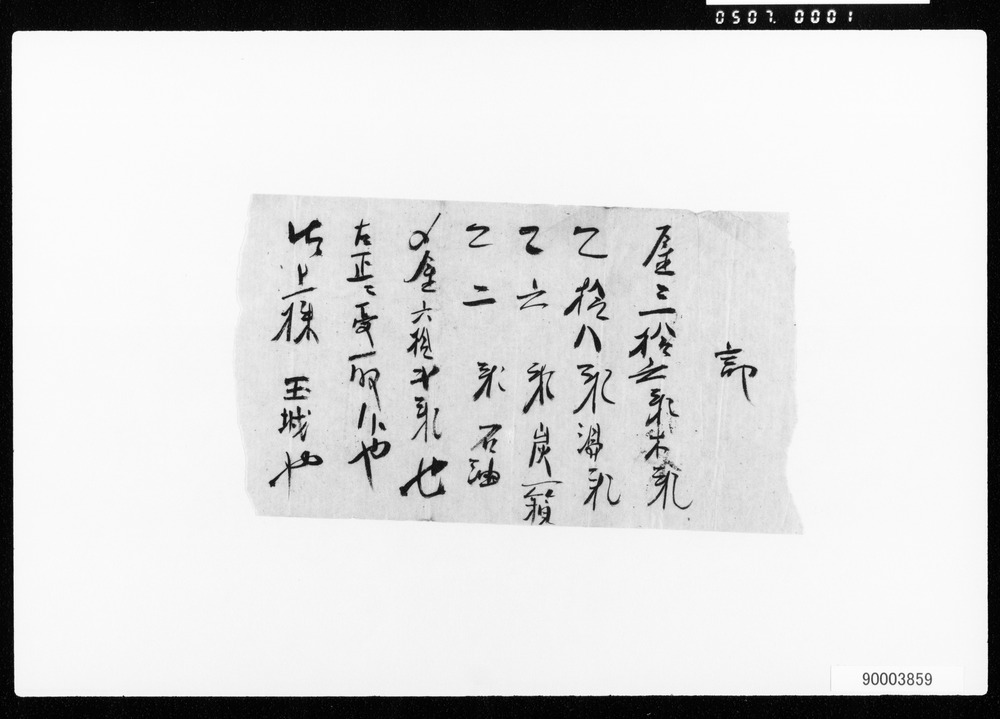 0507.0001
記
金三拾六銭木銭
拾八銭湯銭
六銭炭一
二銭石油
〆金六拾弐銭也
右正ニ受取候也
上様 玉城や
90003859